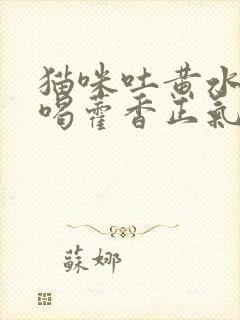 猫咪吐黄水
喝藿香正氣
蘇娜